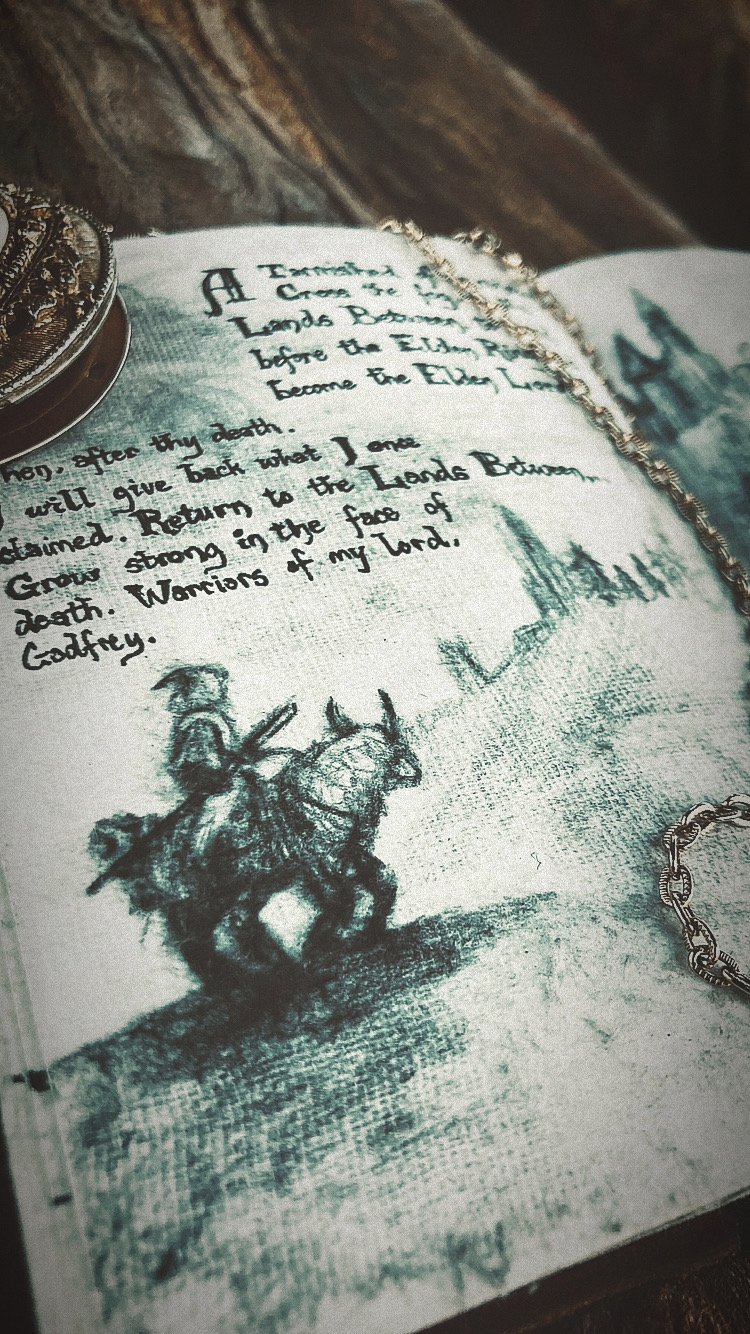 A Tarnished of
Cross the fog
Lands Between
before the Elden Ring
become the Elden Lord
hen, after thy death.
I will give back what I once
claimed. Return to the Lands Between...
Grow strong in the face of
death. Warriors of my lord.
Godfrey.